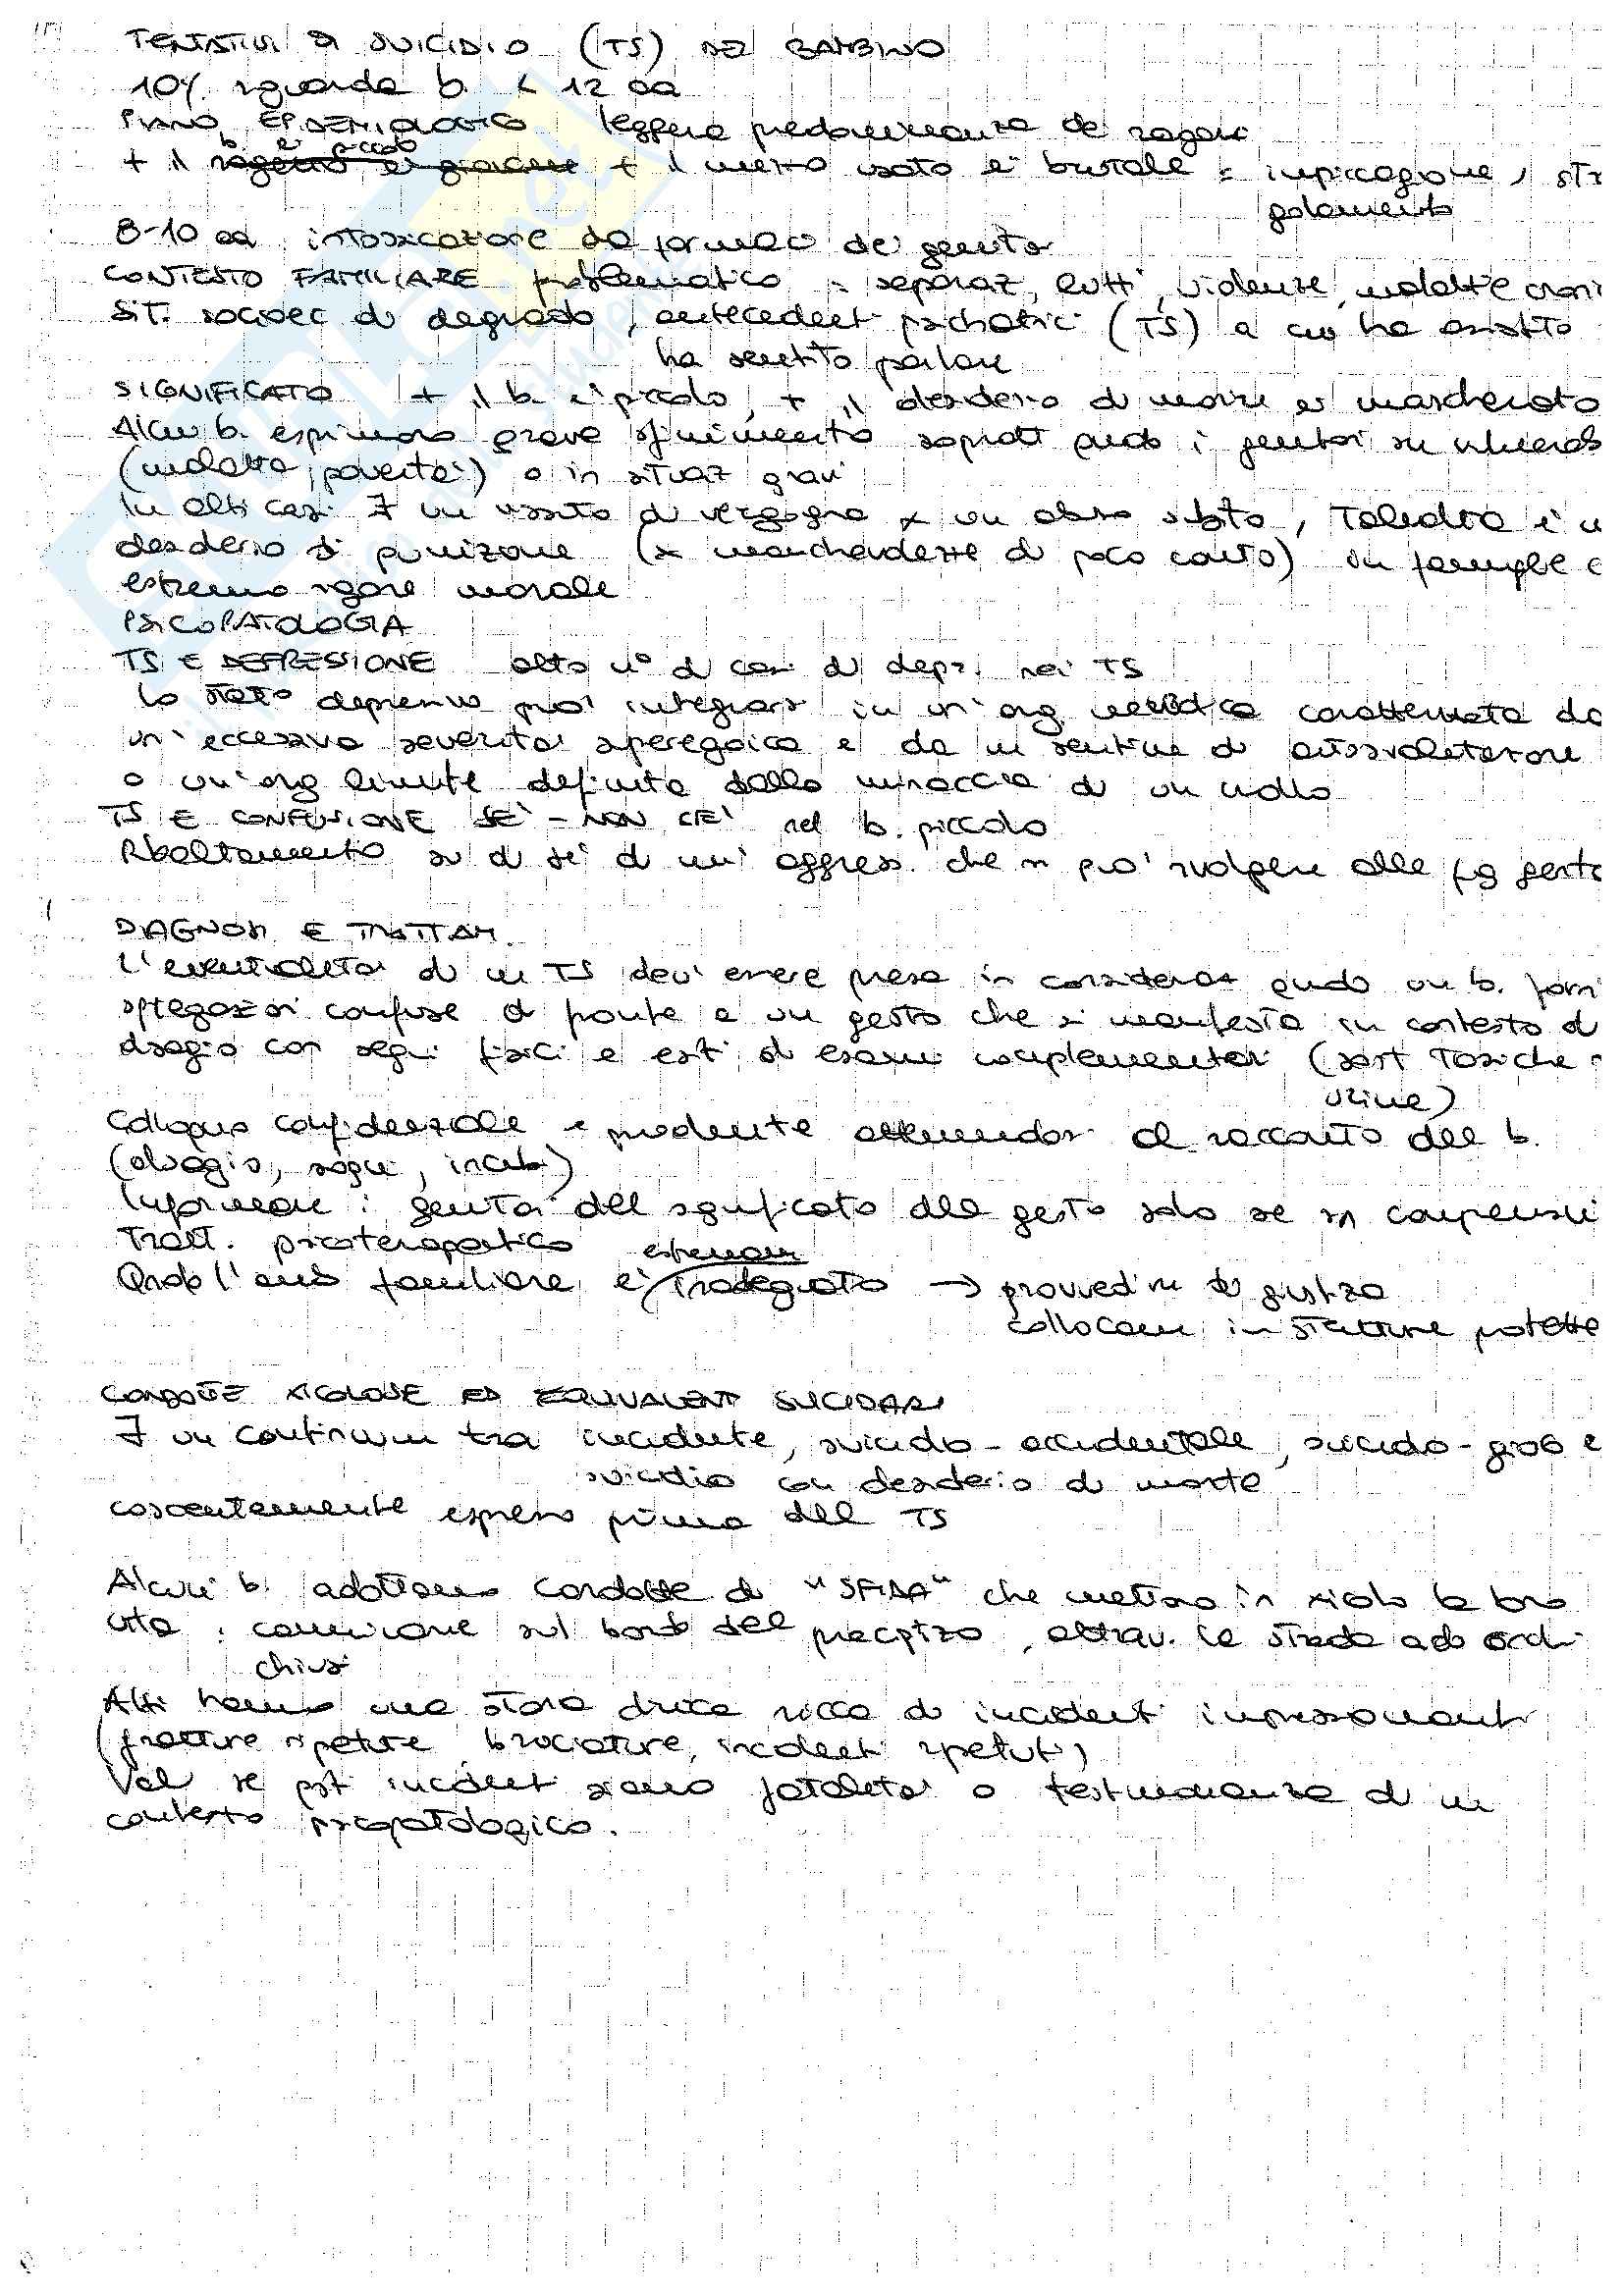 TENTATIVI DI SUICIDIO (TS) NEL BAMBINO
10% riguarda b. < 12 aa
PIANO EPIDEMIOLOGICO leggera predominanza dei ragazzi
b. è piccolo
+ il ragazzo è giovane + il mezzo usato è brutale = impiccagione, stra
golamento
8-10 aa intossicazione da farmaci dei genitori
CONTESTO FAMILIARE problematico: separaz, lutti, violenze, malattie croni
SIT. socioec di degrado, antecedenti psichiatrici (TS) a cui ha assistito
ha sentito parlare
SIGNIFICATO + il b. è piccolo, + il desiderio di morire è mascherato
Alcuni b. esprimono grave sfinimento sopratt qndo i genitori
(malattia, povertà) o in situaz gravi
In altri casi ∃ un vissuto di vergogna x un abuso subito, talvolta è u
desiderio di punizione (x marachelle di poco conto) in famiglie
estremo rigore morale
PSICOPATOLOGIA
TS E DEPRESSIONE alto n° di casi di depr. nei TS
Lo stato depressivo può integrarsi in un'org nevrotica caratterizzata da
un'eccessiva severità superegoica e da un sentim di autosvalutazione
o un'org limite definita dalla minaccia di un crollo
TS E CONFUSIONE SÉ - NON SÉ nel b. piccolo
Ribaltamento su di sé di un'aggress. che n può rivolgere alle fig genito
DIAGNOSI E TRATTAM.
L'eventualità di un TS dev'essere presa in consideraz qndo un b. forni
spiegazioni confuse di fronte a un gesto che si manifesta in contesto di
disagio con segni fisici e esiti di esami complementari (sost tossiche
urine)
Colloquio confidenziale e prudente attenendosi al racconto del b.
(disagio, sogni, incubi)
Informare i genitori del significato del gesto solo se sn comprensivi
Tratt. psicoterapeutico
estremam
Qndo l'amb familiare è inadeguato → provvedim di giustizia
collocam in strutture protette
CONDOTTE RISCHIOSE ED EQUIVALENTI SUICIDARI
∃ un continuum tra incidente, suicidio-accidentale, suicidio-gioco e
suicidio con desiderio di morte
coscientemente espresso prima del TS
Alcuni b. adottano condotte di "SFIDA" che mettono in rischio la loro
vita: camminare sul bordo del precipizio, attrav. le strade ad occhi
chiusi
Altri hanno una storia clinica ricca di incidenti impressionanti
(fratture ripetute, bruciature, incidenti ripetuti)
Val se qsti incidenti siano fatalità o testimonianza di un
contesto psicopatologico.